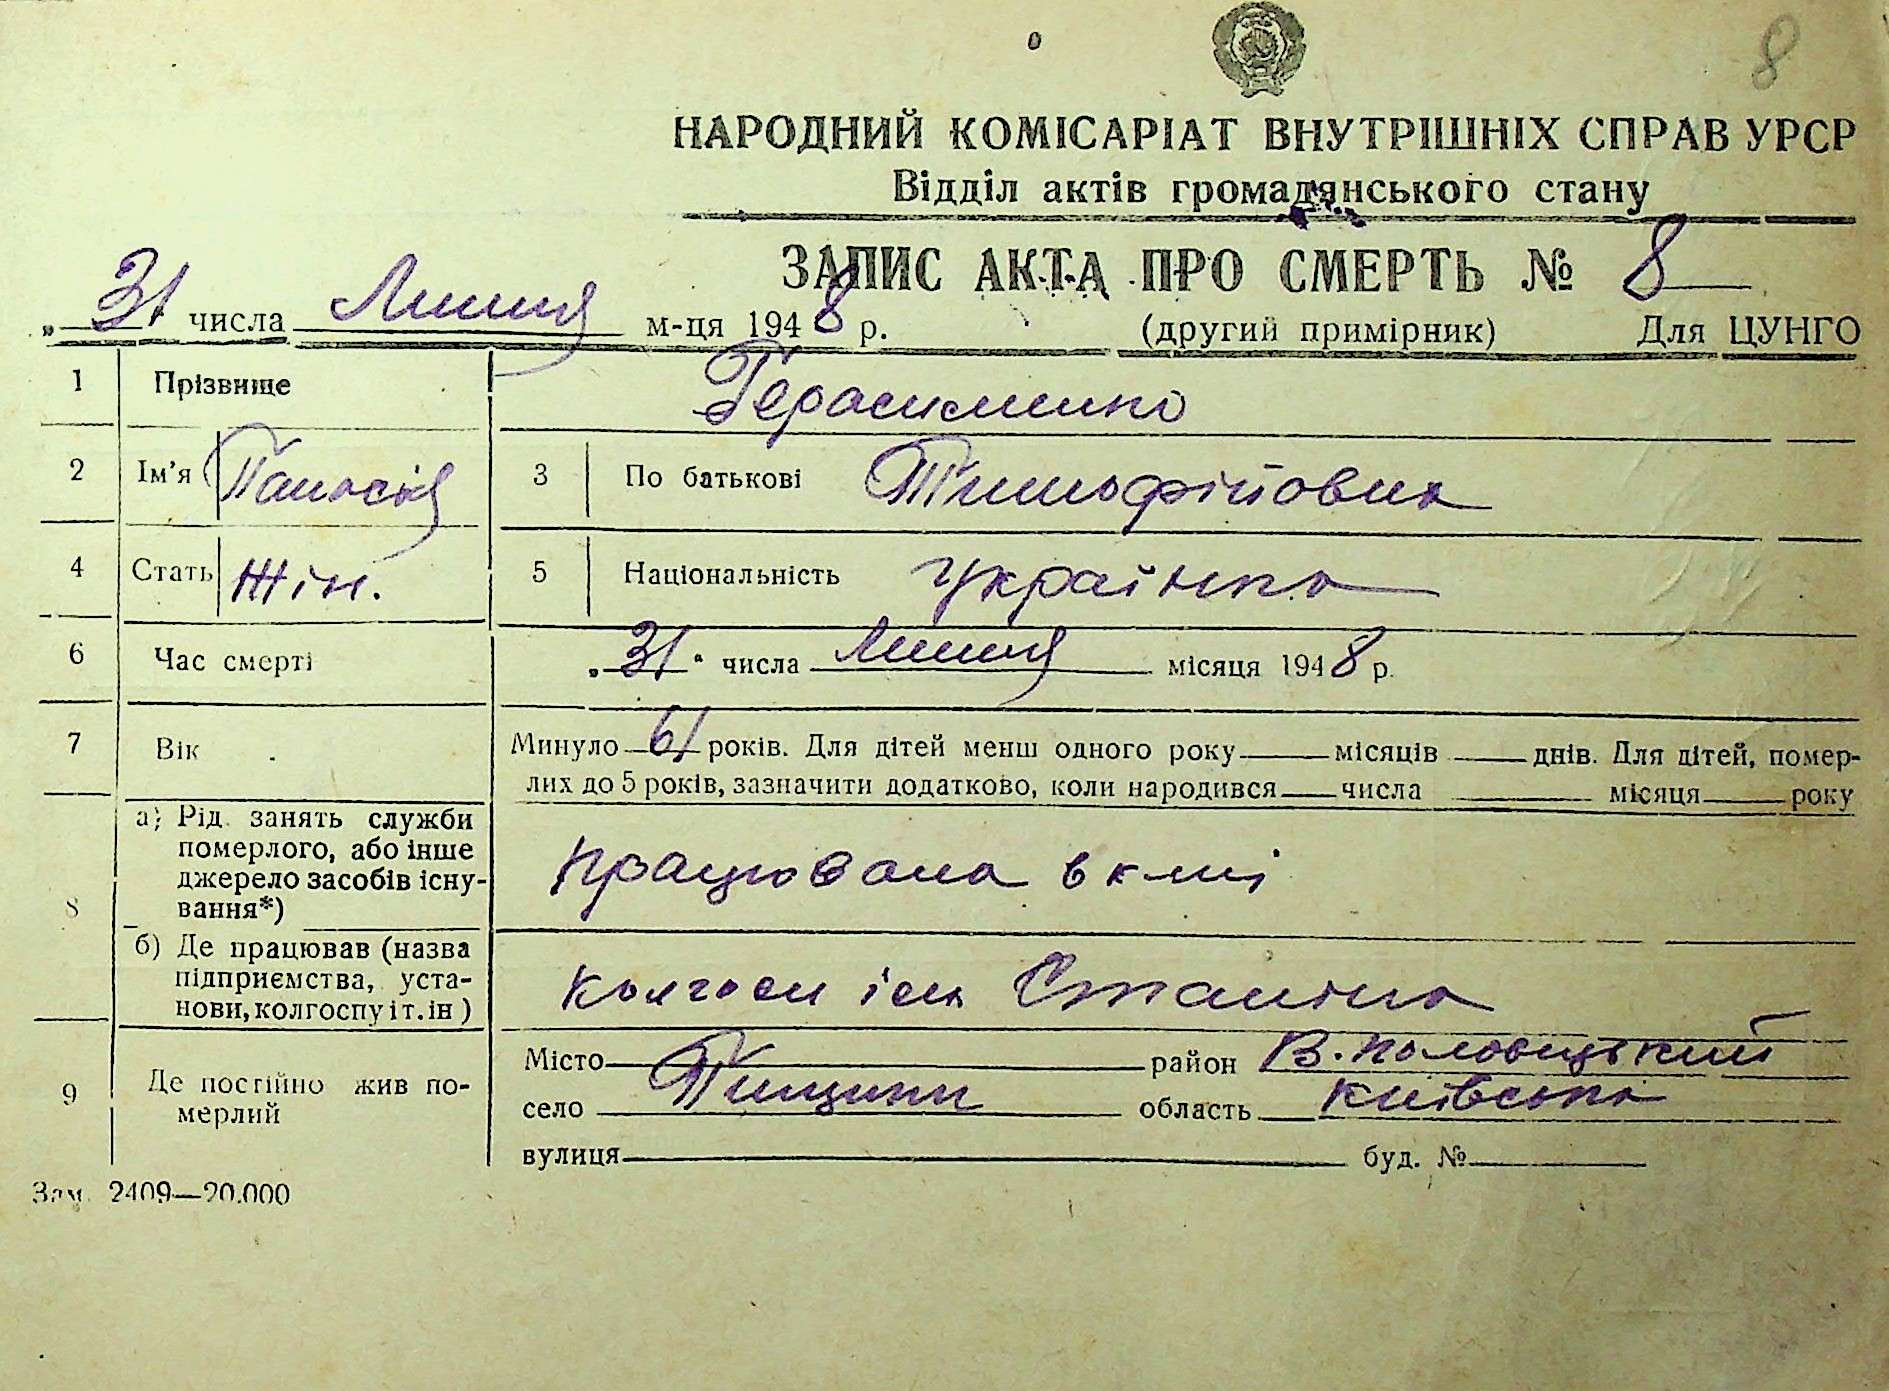 8
НАРОДНИЙ КОМІСАРІАТ ВНУТРІШНІХ СПРАВ УРСР
Відділ актів громадянського стану
ЗАПИС АКТА ПРО СМЕРТЬ № 8
„ 31 числа Липня м-ця 1948 р. (другий примірник) Для ЦУНГО
1 Прізвище Герасименко
2 Ім’я Панасія 3 По батькові Тимофійовна
4 Стать Жін. 5 Національність українка
6 Час смерті „ 31 “ числа Липня місяця 1948 р.
7 Вік Минуло 61 років. Для дітей менш одного року місяців днів. Для дітей, помер-
лих до 5 років, зазначити додатково, коли народився числа місяця року
8 а) Рід занять служби
померлого, або інше
джерело засобів існу-
вання*)
працювала в к-пі
б) Де працював (назва
підприємства, уста-
нови, колгоспу і т. ін)
колгосп ім Сталіна
9 Де постійно жив по-
мерлий
Місто район В. Половецький
село Пищики область Київська
вулиця буд. №
Зам. 2409—20.000